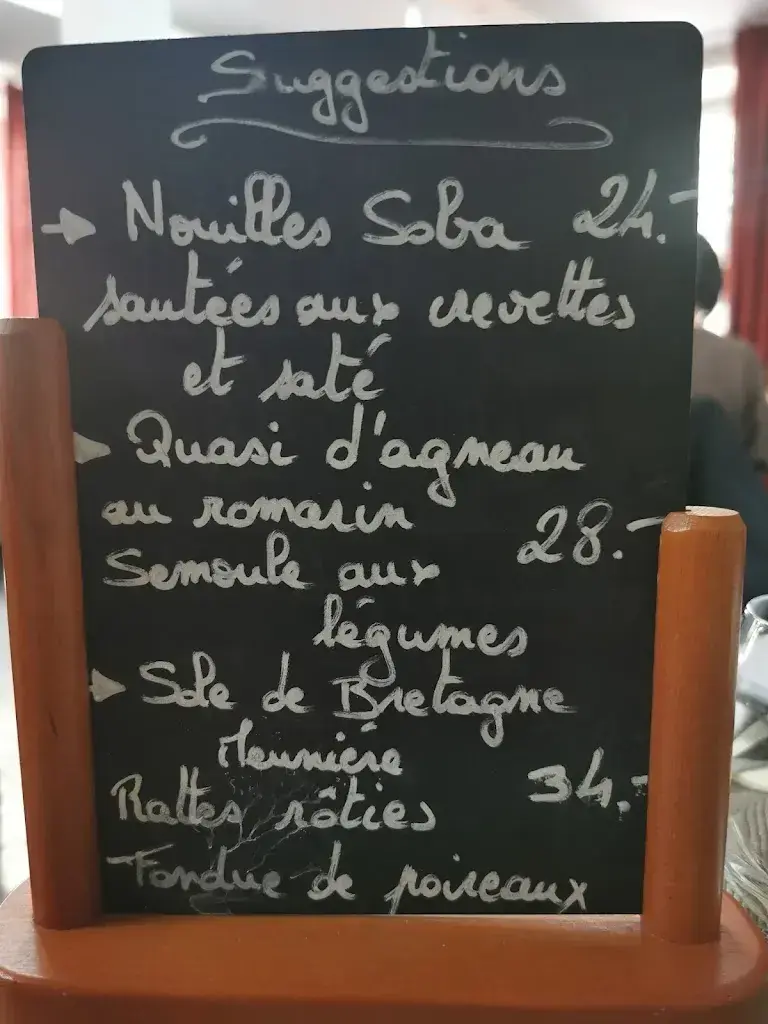 Suggestions
→ Nouilles Soba 24.-
sautées aux crevettes
et saté
→ Quasi d'agneau
au romarin
28.-
Semoule aux
légumes
→ Sole de Bretagne
Meunière
34.-
Rattes rôties
Fondue de poireaux